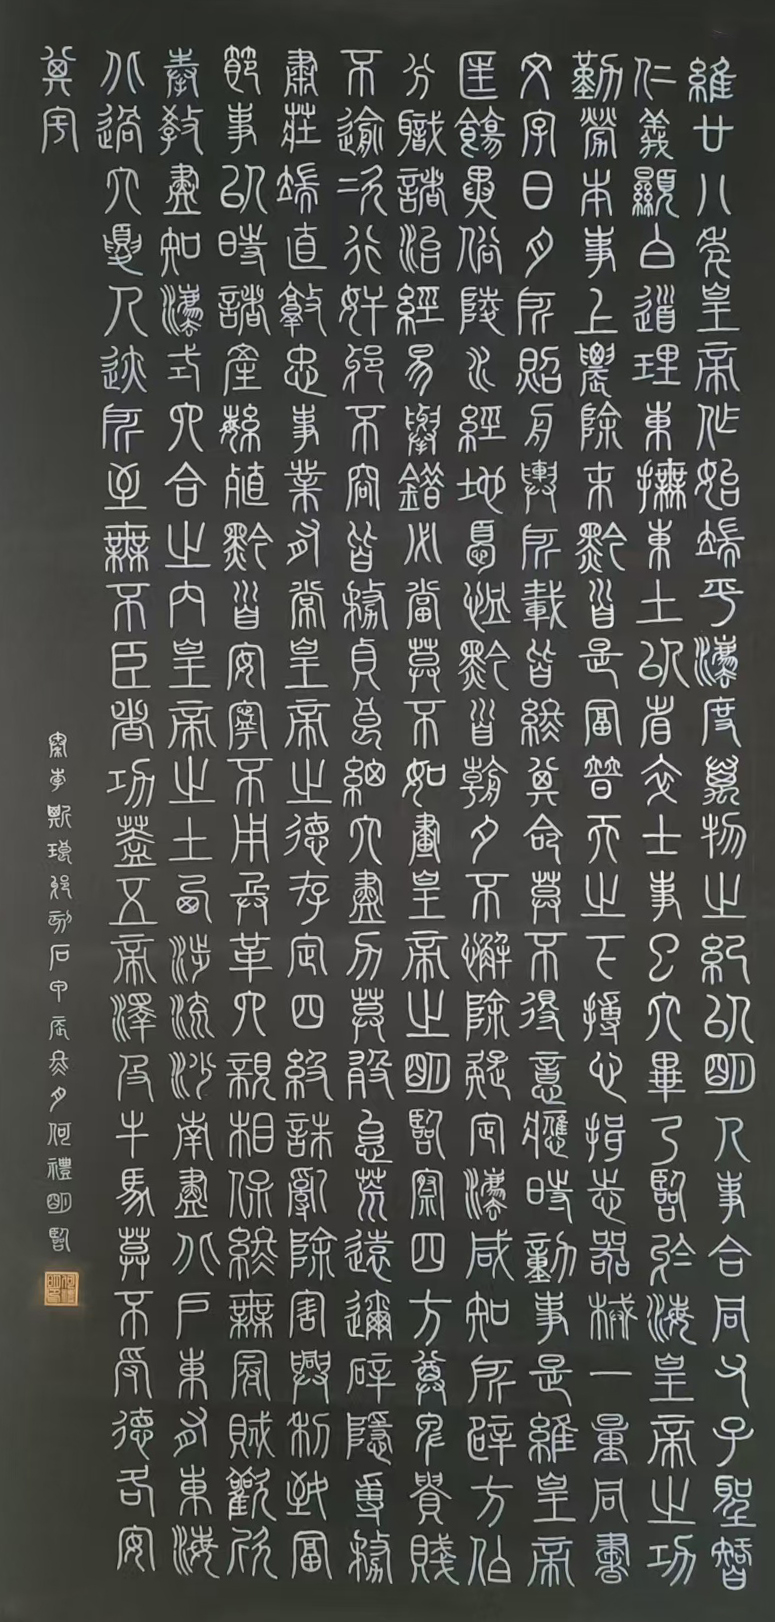 維廿八年皇帝作始端平灋度萬物之紀以明人事合同父子聖智
仁義顯白道理東撫東土以省卒士事已大畢乃臨於海皇帝之功
勤勞本事上農除末黔首是富普天之下摶心揖志器械一量同書
文字日月所照舟輿所載皆終其命莫不得意應時動事是維皇帝
匡飭異俗陵水經地憂恤黔首朝夕不懈除疑定灋咸知所辟方伯
分職諸治經易舉錯必當莫不如畫皇帝之明臨察四方尊卑貴賤
不逾次行奸邪不容皆務貞良細大盡力莫敢怠荒遠邇辟隱專務
肅莊端直敦忠事業有常皇帝之德存定四極誅亂除害興利致富
節事以時諸產繁殖黔首安寧不用兵革六親相保終無寇賊歡欣
奉教盡知灋式六合之內皇帝之土西涉流沙南盡北戶東有東海
北過大夏人跡所至無不臣者功蓋五帝澤及牛馬莫不受德各安
其宇
秦李斯琅邪刻石甲辰冬月何禮明臨